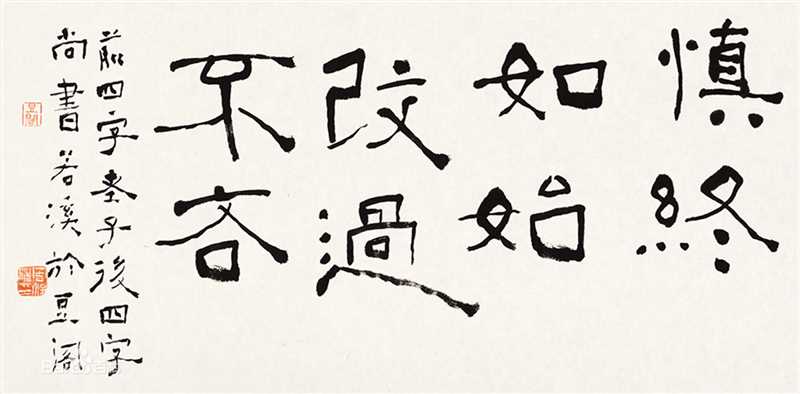 慎終
如始
改過
不吝
前四字老子後四字
尚書若溪於豆閣